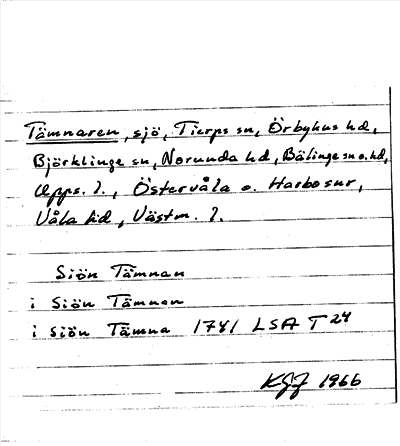 Tämnaren, sjö, Tierps sn, Örbyhus hd,
Björklinge sn, Norunda hd, Bälinge sn o. hd,
Upps. l., Östervåla o. Harbo snr,
Våla hd, Västm. l.
Siön Tämnan
i Siön Tämnan
i siön Tämna 1741 LSA T 24
1966